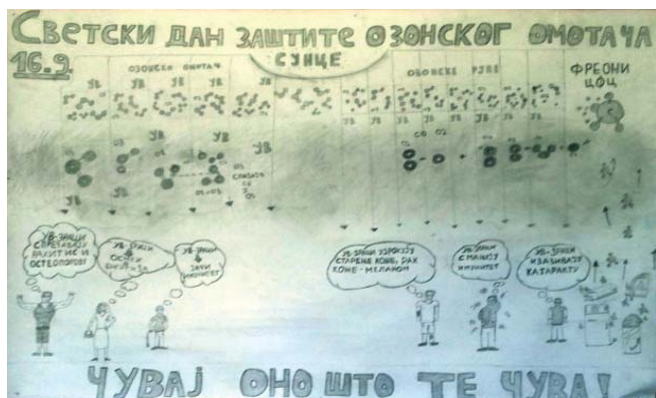 СВЕТСКИ ДАН ЗАШТИТЕ ОЗОНСКОГ ОМОТАЧА
16.9.
СУНЦЕ
ОЗОНСКИ ОМОТАЧ
ОЗОНСКЕ РУПЕ
ФРЕОНИ
ЦФЦ
УВ УВ УВ УВ УВ
УВ УВ УВ УВ УВ УВ УВ УВ
УВ
УВ
УВ
УВ
УВ-ЗРАЦИ
СПРЕЧАВАЈУ
РАХИТИС И
ОСТЕОПОРОЗУ
УВ-ЗРАЦИ
УВ-ЗРАЦИ
ЈАЧИ
ИМУНИТЕТ
УВ-ЗРАЦИ УЗРОКУЈУ
СТАРЕЊЕ КОЖЕ, РАК
КОЖЕ-МЕЛАНОМ
УВ-ЗРАЦИ
СМАЊУЈУ
ИМУНИТЕТ
УВ-ЗРАЦИ
ИЗАЗИВАЈУ
КАТАРАКТУ
ЧУВАЈ ОНО ШТО ТЕ ЧУВА!